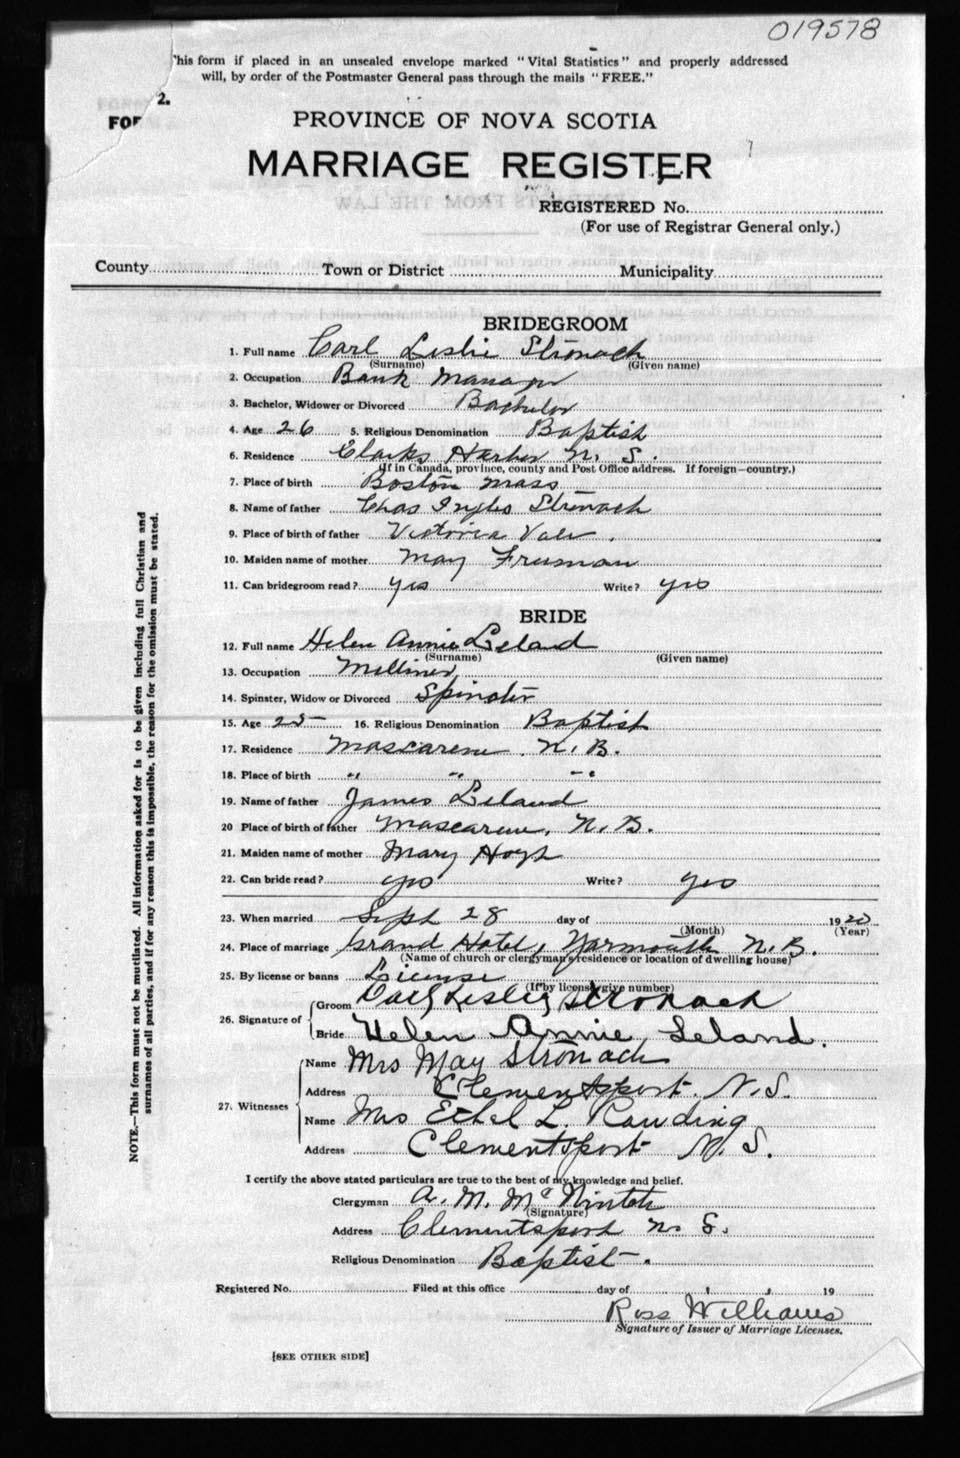 019578
This form if placed in an unsealed envelope marked "Vital Statistics" and properly addressed
will, by order of the Postmaster General pass through the mails "FREE."
2.
FOR
PROVINCE OF NOVA SCOTIA
MARRIAGE REGISTER
REGISTERED No.
(For use of Registrar General only.)
County Town or District Municipality
BRIDEGROOM
1. Full name Carl Leslie Stronach
(Surname) (Given name)
2. Occupation Bank Manager
3. Bachelor, Widower or Divorced Bachelor
4. Age 26 5. Religious Denomination Baptist
6. Residence Clarks Harbor N. S.
(If in Canada, province, county and Post Office address. If foreign—country.)
7. Place of birth Boston Mass
8. Name of father Chas Stronach
9. Place of birth of father Victoria Vale.
10. Maiden name of mother May Freeman
11. Can bridegroom read? yes Write? yes
BRIDE
12. Full name Helen Annie Leland
(Surname) (Given name)
13. Occupation Milliner
14. Spinster, Widow or Divorced Spinster
15. Age 25 16. Religious Denomination Baptist
17. Residence Mascarene. N. B.
18. Place of birth " " "
19. Name of father James Leland
20 Place of birth of father Mascarene, N. B.
21. Maiden name of mother Mary
22. Can bride read? yes Write? yes
23. When married Sept 28 day of 1920
(Month) (Year)
24. Place of marriage Grand Hotel, Yarmouth N.B.
(Name of church or clergyman's residence or location of dwelling house)
25. By license or banns License
(If by license give number)
26. Signature of Groom Carl Leslie Stronach
Bride Helen Annie Leland.
27. Witnesses Name Mrs May Stronach
Address Clementsport. N.S.
Name Mrs Ethel L. Rawding
Address Clementsport N. S.
I certify the above stated particulars are true to the best of my knowledge and belief.
Clergyman A. M. McNintch
(Signature)
Address Clementsport N. S.
Religious Denomination Baptist.
Registered No. Filed at this office day of 19
Ross Williams
Signature of Issuer of Marriage Licenses.
[SEE OTHER SIDE]
NOTE.—This form must not be mutilated. All information asked for is to be given including full Christian and
surnames of all parties, and if for any reason this is impossible, the reason for the omission must be stated.